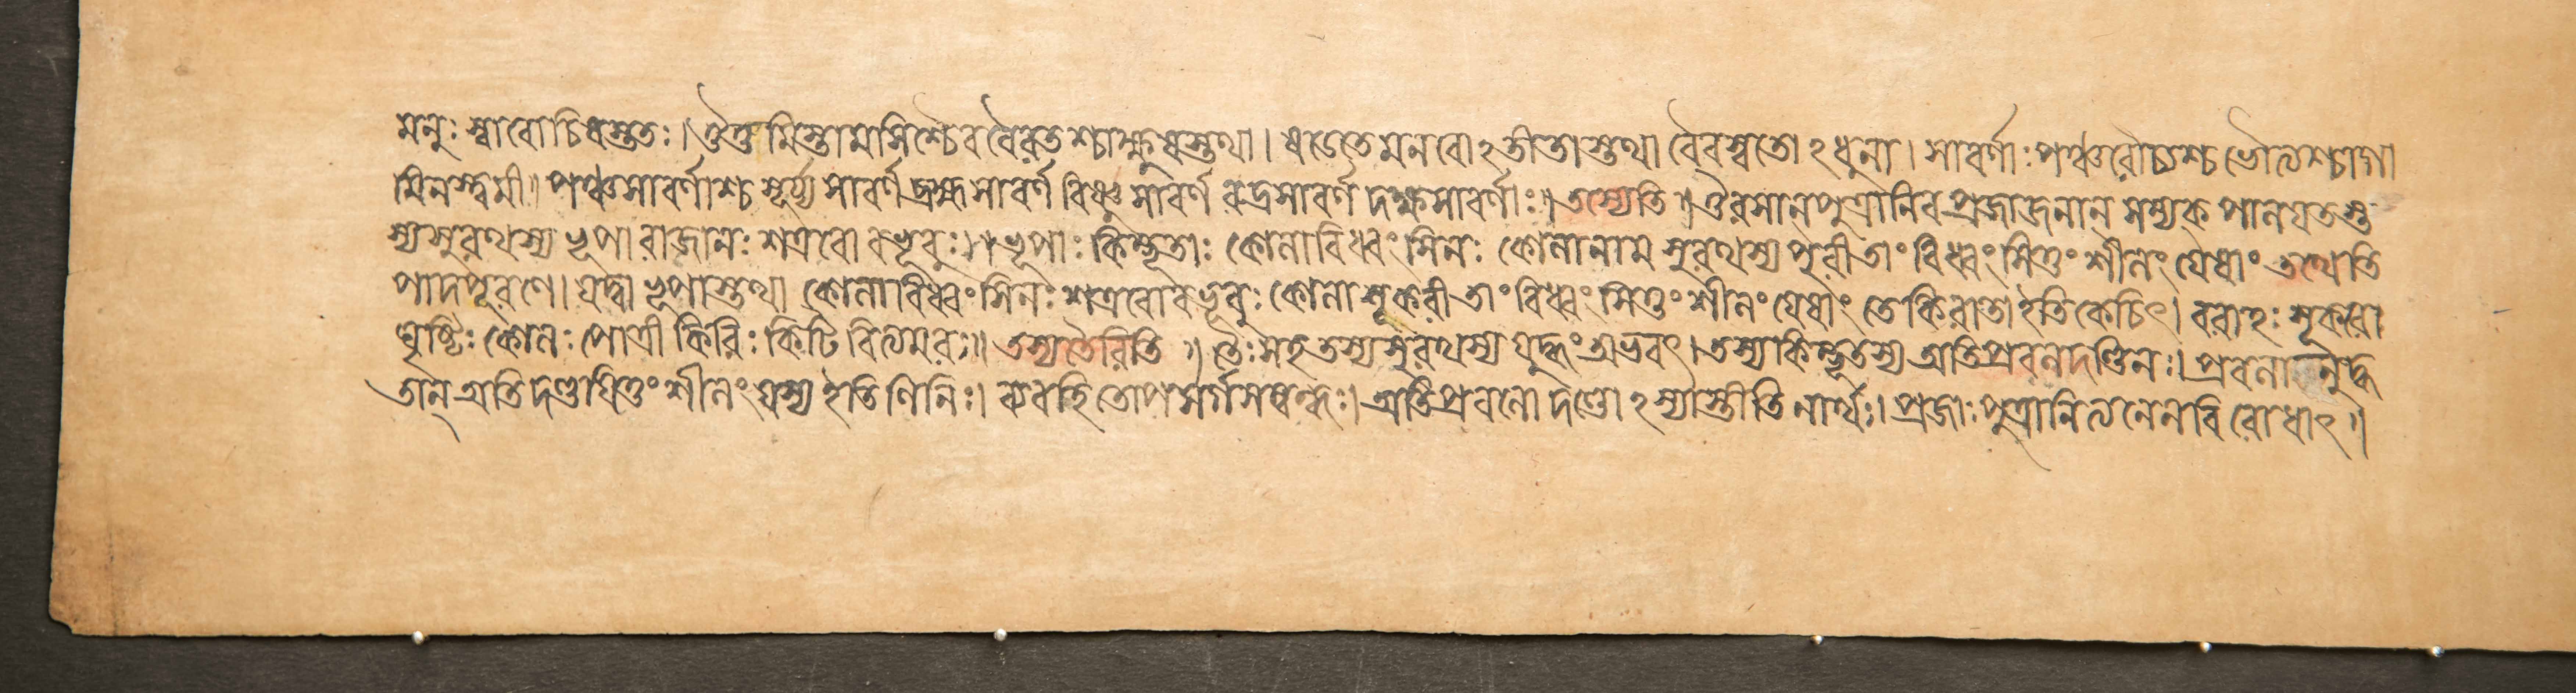 মনুঃ স্বাবোচিষস্তুতঃ। ঔত্তমিস্তামসিশ্চৈব বৈরতশ্চাক্ষুষস্তথা। ষডেতে মনবোঽতীতাস্তুথা বৈবস্বতোঽধুনা। সাবর্ণাঃ পঞ্চরৌচ্যশ্চ ভৌত্যশ্চাগা
মিনস্ত্বমী॥ পঞ্চসাবর্ণাশ্চ সূর্য্যসাবর্ণ ব্রহ্মসাবর্ণ বিষ্ণুসাবর্ণ রুদ্রসাবর্ণ দক্ষসাবর্ণাঃ॥ তস্যেতি॥ ঔরসান্ পুত্রানিব প্রজাজনান্ সম্যক্ পালযতস্ত
স্যসুরথস্য ভূপা রাজানঃ শত্রবো বভূবুঃ॥ ভূপাঃ কিম্ভূতাঃ কোলাবিধ্বংসিনঃ কোলানাম সুরথস্য পুরী তাং বিধ্বংসিতুং শীলং যেষাং তথেতি
পাদপূরণে। যদ্বা ভূপাস্তুথা কোলাবিধ্বংসিনঃ শত্রবোবভূবুঃ কোলা শূকরী তাং বিধ্বংসিতুং শীলং যেষাং তে কিরাতা ইতিকেচিৎ। বরাহঃ শূকরো
ঘৃষ্টিঃ কোলঃ পোত্রী কিরিঃ কিটি বিত্যমরঃ॥ তস্যতৈরিতি॥ তৈঃ সহ তস্যসুরথস্য যুদ্ধং অভবৎ। তস্যকিম্ভূতস্য অতিপ্রবলদণ্ডিনঃ। প্রবলা নুদ্ধ
তান্ অতি দণ্ডযিতুং শীলং যস্য ইতি ণিনিঃ। ব্যবহিতোপসর্গসম্বন্ধঃ। অতিপ্রবলো দণ্ডোঽস্যাস্তীতি নার্থঃ। প্রজাঃ পুত্রানিত্যনেনবিরোধাৎ॥